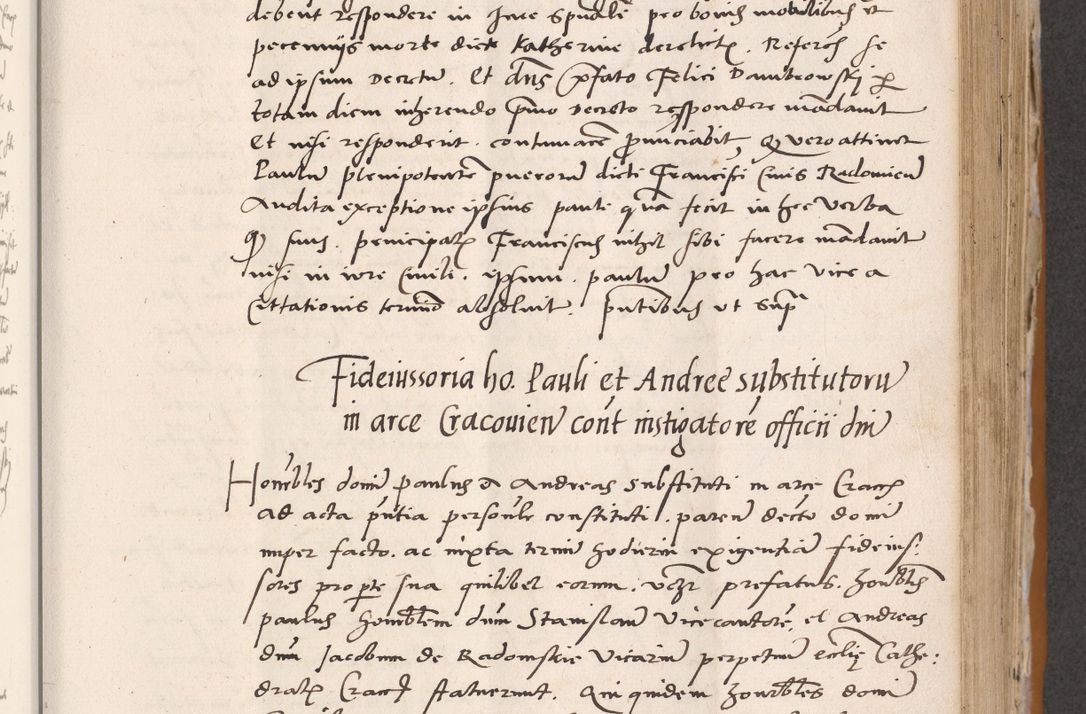 debent respondere in Jure spũali pro bonis mobilibus et
pecunijs morte dicte Katherine derelictȩ. Referẽs se
ad ipsum Decretũ. Et dñs p̃fato Felici Dambrowskj per
totam diem inherendo p̃mo Decreto respondere mãdavit
Et nisi responderit. contumacẽ pronũciabit, Quo vero attinet
Paulũ plenipotentẽ puerorũ dicti Francisci Civis Radomieñ
Audita exceptione ipsius pauli quã fecit in hec verba
Quod suus principalis Franciscus nihil sibi facere mãdavit
nisi in iure Civili. ipsum paulũ pro hac vice a
Cittationis termiõ absoluit. pñtibus ut supª
Fideiussoria ho. Pauli et Andree substitutorũ
in arce Cracouieñ cont̃ instigatorẽ officii dñi
Honorbles domĩ paulus et Andreas substituti in arce Cracoᷤ
ad acta p̃ntia personłr constituti. parenď decto domĩ
nuper facto. ac iuxta terminĩ hodierni exigentiã fideius:
sores pro parte sua quilibet eorum. vcƷ prefatus. honorblis
paulus honorblem dñm Stanislaũ Vicecantorẽ, et Andreas
dñm Jacobum de Radomskie Vicariũ perpetuũ eccłię Cathe:
dralȩ Cracoᷤ statuerunt. Qui quidem honorbles domĩ